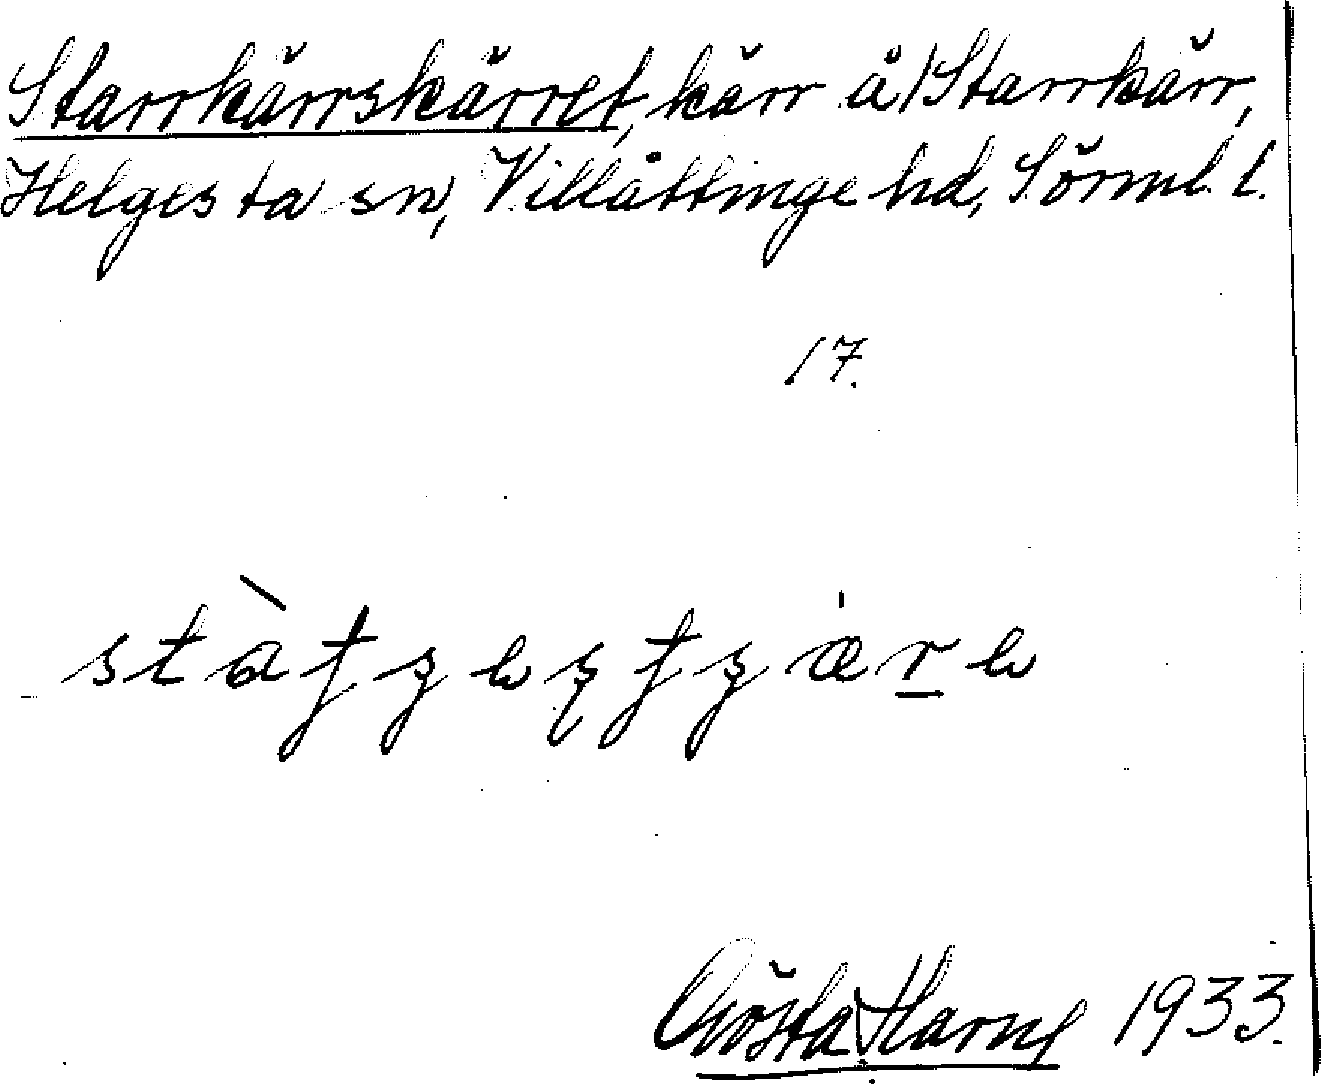 Starrkärrskärret, kärr å Starrkärr,
Helgesta sn, Villåttinge hd, Sörml. l.
17.
Gösta Harny 1933.